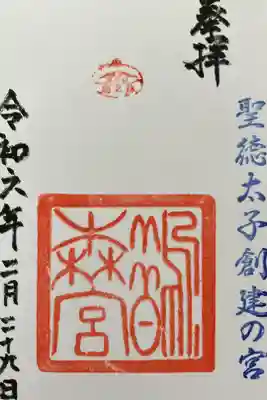 奉拝
聖徳太子創建の宮
鵲
森宮
令和六年二月二十九日